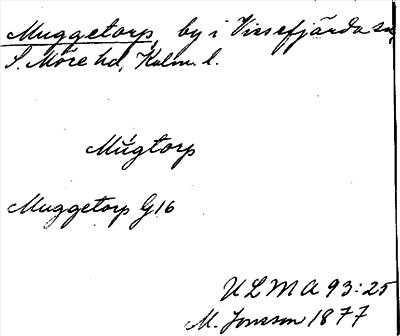 Muggetorp, by i Vissefjärda sn,
S. Möre hd, Kalm. l.
Múgtorp
Muggetorp G16
ULMA 93:25
M. Jonsson 1877